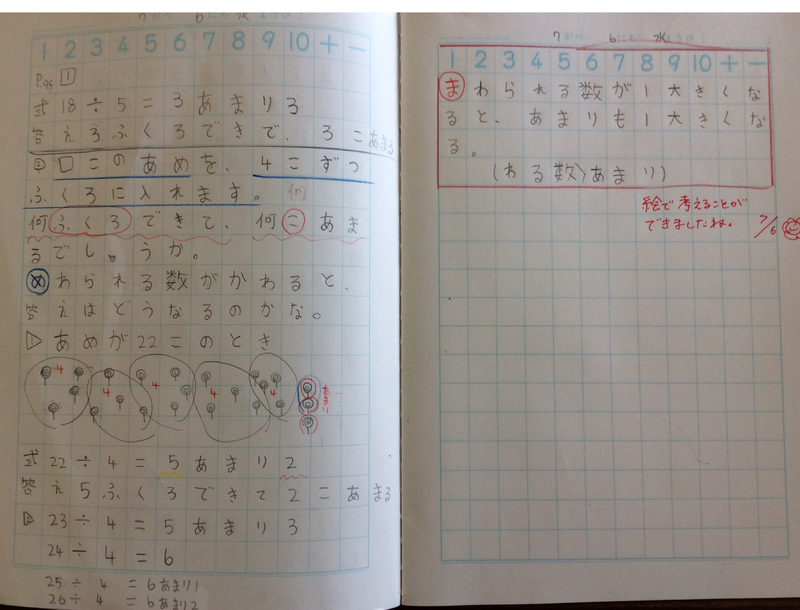 7がつ 6にち 水ようび
1 2 3 4 5 6 7 8 9 10 + −
P.95 1
式 18÷5=3あまり3
答え3ふくろできで、3こあまる
② □このあめを、4こずつ
ふくろに入れます。何
何ふくろできて、何こあま
るでしょうか。
めわられる数がかわると、
答えはどうなるのかな。
▷あめが22このとき
4 4 4 4 4 あまり
式 22÷4=5あまり2
答え5ふくろできて2こあまる
▷ 23÷4=5あまり3
24÷4=6
25÷4=6あまり1
26÷4=6あまり2
7がつ 6にち 水ようび
1 2 3 4 5 6 7 8 9 10 + −
まわられる数が1大きくな
ると、あまりも1大きくな
る。
(わる数>あまり)
絵で考えることが
できましたね。 7/6